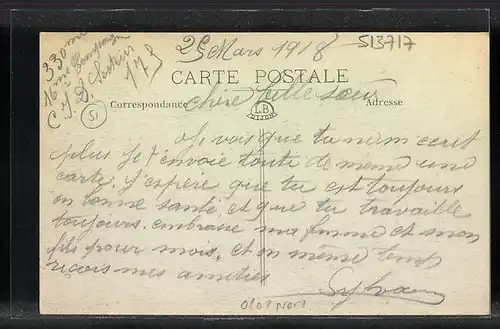 25 Mars 1918
513717
330me
16me Compagnie
178
51
CARTE POSTALE
Correspondance
L.B
DIJON
Adresse
chère belle sœur
Je vois que tu ne m'ecrit
plus Je t'envoie toute de meme une
carte. J'espère que tu est toujours
en bonne santé et que tu travaille
toujours. embrasse ma femme et mon
fils pour mois. et en même temp
reçois mes amitiés
Sylvain